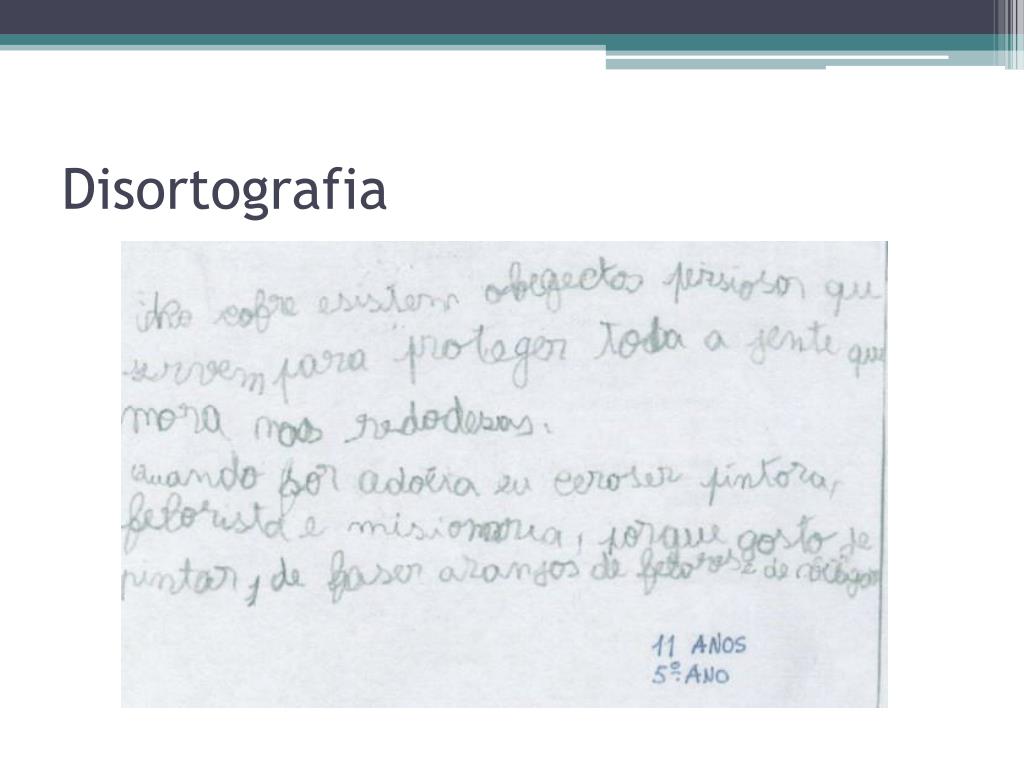 Disortografia
cofre esistem obegectos persiosos que
servem para proteger toda a jente que
mora nas redodesas.
Quando for adoéra eu ceroser pintora,
felorista e misionoria, porque gosto je
pintar, de faser aranjos de felores e de
11 ANOS
5º. ANO